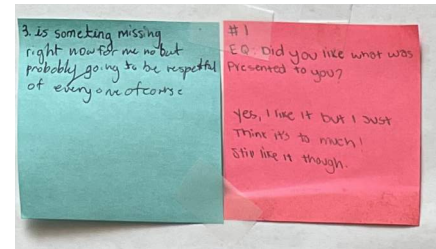 3. is someting missing
right now for me no but
probably going to be respetful
of every one of corrse
#1
EQ: Did you like what was
Presented to you?
yes, I like it but I Just
Think it's to much!
Still like it though.